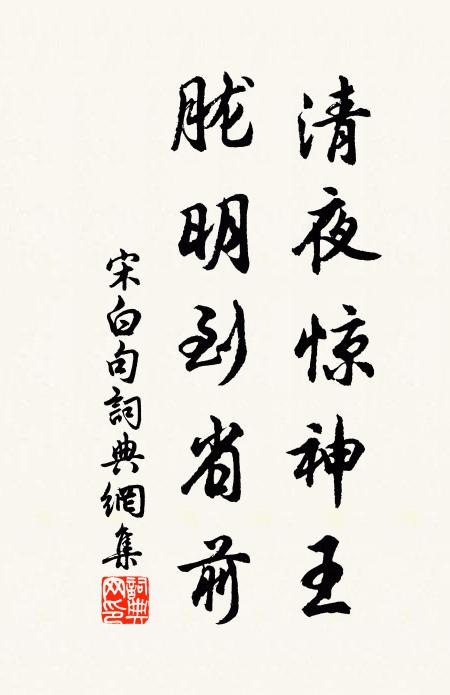 清夜惊神王
胧明到省前
宋白句詞典網集
詞典网印